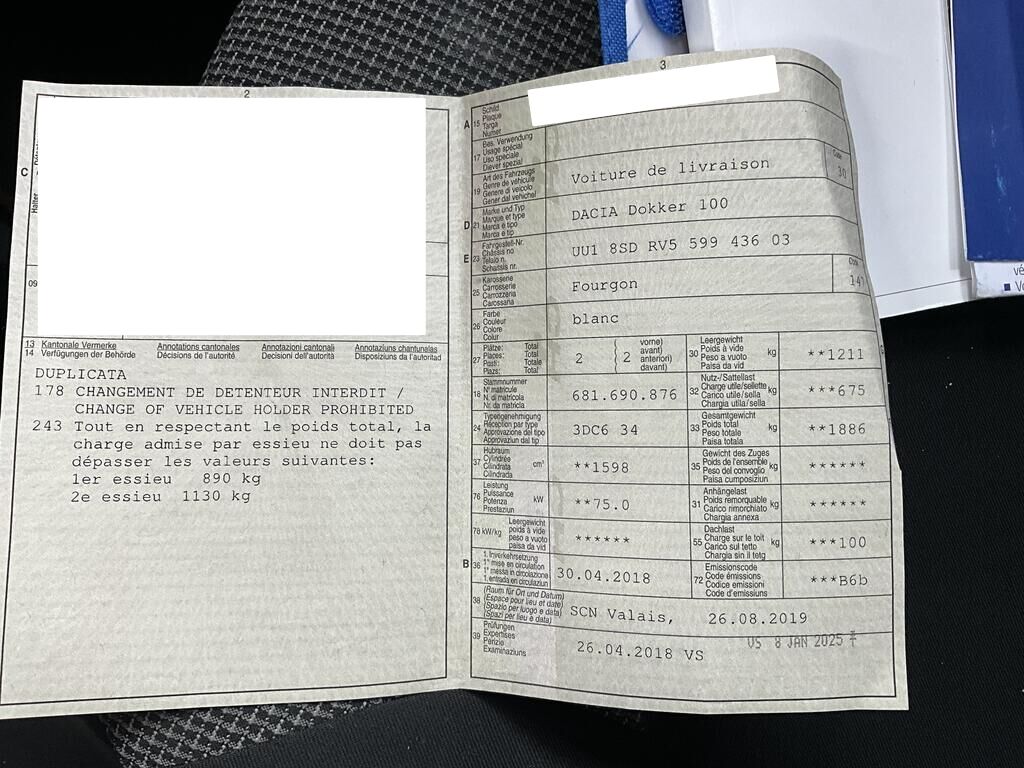 2
C
Halter
09
13 Kantonale Vermerke Annotations cantonales Annotazioni cantonali Annotaziuns chantunalas
14 Verfügungen der Behörde Décisions de l'autorité Decisioni dell'autorità Disposiziuns da l'autoritad
DUPLICATA
178 CHANGEMENT DE DETENTEUR INTERDIT /
CHANGE OF VEHICLE HOLDER PROHIBITED
243 Tout en respectant le poids total, la
charge admise par essieu ne doit pas
dépasser les valeurs suivantes:
1er essieu 890 kg
2e essieu 1130 kg
3
A 15
Schild
Plaque
Targa
Numer
17
Bes. Verwendung
Usage spécial
Uso speciale
Diever spezial
19
Art des Fahrzeugs
Genre de véhicule
Genere di veicolo
Gener dal vehichel
Voiture de livraison
Code
30
D 21
Marke und Typ
Marque et type
Marca e tipo
Marca e tip
DACIA Dokker 100
E 23
Fahrgestell-Nr.
Châssis no
Telaio n.
Schassis nr.
UU1 8SD RV5 599 436 03
25
Karosserie
Carrosserie
Carrozzeria
Carossaria
Fourgon
Code
147
26
Farbe
Couleur
Colore
Colur
blanc
27
Plätze: Total
Places: Total
Posti: Totale
Plazs: Total
2
2
vorne)
avant)
anteriori)
davant)
30
Leergewicht
Poids à vide
Peso a vuoto
Paisa da vid
kg
**1211
18
Stammnummer
N° matricule
N. di matricola
Nr. da matricla
681.690.876
32
Nutz-/Sattellast
Charge utile/sellette
Carico utile/sella
Chargia utila/sella
kg
***675
24
Typengenehmigung
Réception par type
Approvazione del tipo
Approvaziun dal tip
3DC6 34
33
Gesamtgewicht
Poids total
Peso totale
Paisa totala
kg
**1886
37
Hubraum
Cylindrée
Cilindrata
Cilindrada
cm³
**1598
35
Gewicht des Zuges
Poids de l'ensemble
Peso del convoglio
Paisa cumposiziun
kg
******
76
Leistung
Puissance
Potenza
Prestaziun
kW
**75.0
31
Anhängelast
Poids remorquable
Carico rimorchiato
Chargia annexa
kg
******
78 kW/kg
Leergewicht
poids à vide
peso a vuoto
paisa da vid
******
55
Dachlast
Charge sur le toit
Carico sul tetto
Chargia sin il tetg
kg
***100
B 36
1. Inverkehrsetzung
1re mise en circulation
1a messa in circolazione
1. entrada en circulaziun
30.04.2018
72
Emissionscode
Code émissions
Codice emissioni
Code d'emissiuns
***B6b
38
(Raum für Ort und Datum)
(Espace pour lieu et date)
(Spazio per luogo e data)
(Spazi per lieu e data)
SCN Valais, 26.08.2019
39
Prüfungen
Expertises
Perizie
Examinaziuns
26.04.2018 VS
VS 8 JAN 2025